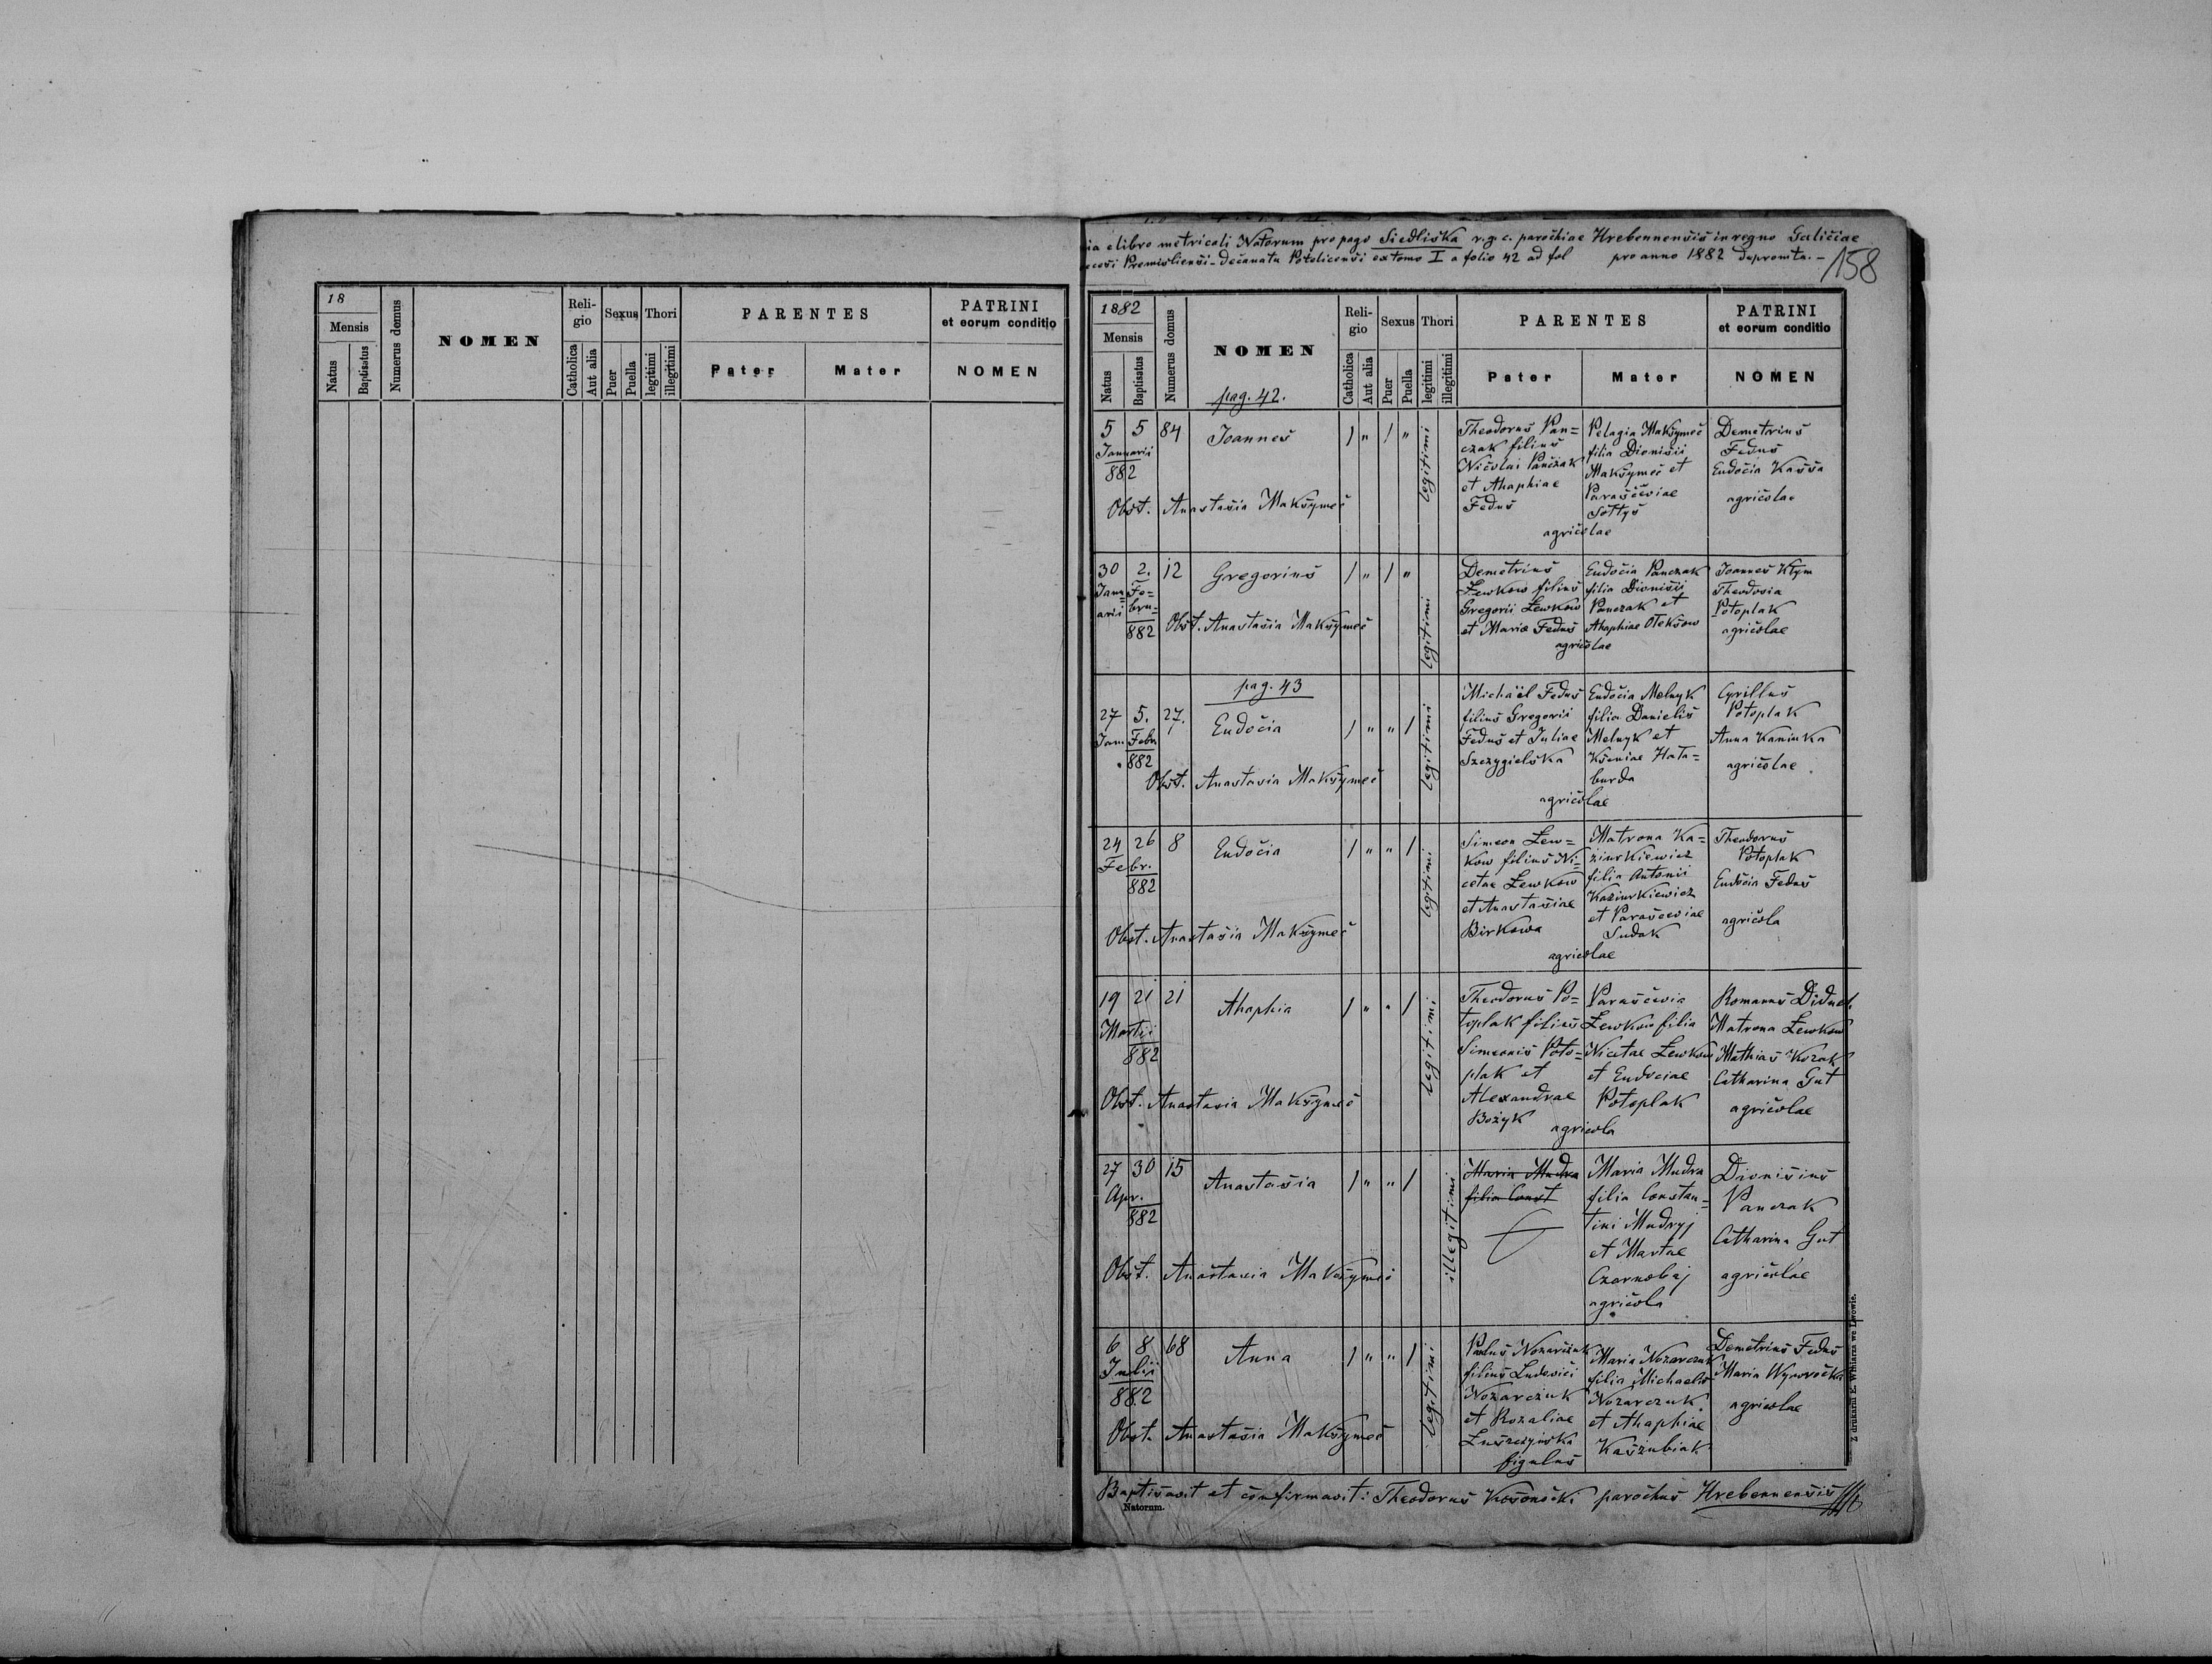 18
Mensis
Natus
Baptisatus
Numerus domus
NOMEN
Religio
Catholica
Aut alia
Sexus
Puer
Puella
Thori
legitimi
illegitimi
PARENTES
Pater
Mater
PATRINI
et eorum conditio
NOMEN
ia e libro metricali Natorum pro pago Siedliska r. g. c. parochiae Hrebennensis in regno Galiciae
Premisliensi - Decanatu Potelicensi ex tomo I a folio 42 ad fol pro anno 1882 depromta. -
158
1882
Mensis
Natus
Baptisatus
Numerus domus
NOMEN
pag. 42.
Religio
Catholica
Aut alia
Sexus
Puer
Puella
Thori
legitimi
illegitimi
PARENTES
Pater
Mater
PATRINI
et eorum conditio
NOMEN
5 5 84 Joannes 1 " 1 "
Januarii
882
Obst. Anastasia Maksymec
legitimi
Theodorus Pan=
czak filius
Nicolai Panczak
et Ahaphiae
Fedus
Pelagia Maksymec
filia Dionisii
Maksymec et
Parasceviae
Sołtys
agricolae
Demetrius
Fedus
Eudocia Kassa
agricolae
30 2. 12 Gregorius 1 " 1 "
Janu=
arii
Fe=
bru=
882
Obst. Anastasia Maksymec
legitimi
Demetrius
Łewkow filius
Gregorii Łewkow
et Mariae Fedus
Eudocia Panczak
filia Dionisii
Panczak et
Ahaphiae Oleksow
agricolae
Joannes Kłym
Theodosia
Potoplak
agricolae
pag. 43
27 5. 27. Eudocia 1 " " 1
Jan. Febr.
882
Obst. Anastasia Maksymec
legitimi
Michaël Fedus
filius Gregorii
Fedus et Juliae
Szczygielska
Eudocia Melnyk
filia Danielis
Melnyk et
Kseniae Hała=
burda
agricolae
Cyrillus
Potoplak
Anna Kaminka
agricolae
24 26 8 Eudocia 1 " " 1
Febr.
882
Obst. Anastasia Maksymec
legitimi
Simeon Łew=
kow filius Ni=
cetae Łewkow
et Anastasiae
Birkowa
Matrona Ka=
ziurkiewicz
filia Antonii
Kaziurkiewicz
et Parasceviae
Sudak
agricolae
Theodorus
Potoplak
Eudocia Fedus
agricola
19 21 21 Ahaphia 1 " " 1
Martii
882
Obst. Anastasia Maksymec
legitimi
Theodorus Po=
toplak filius
Simeonis Poto=
plak et
Alexandrae
Bożyk
Parascevia
Łewkow filia
Nicetae Łewkow
et Eudociae
Potoplak
agricola
Romanus
Matrona Łewkow
Mathias Kozak
Catharina Gut
agricolae
27 30 15 Anastasia 1 " " 1
Apr.
882
Obst. Anastasia Maksymec
illegitimi
Maria Mudra
filia Const
Maria Mudra
filia Constan=
tini Mudryj
et Martae
Czarnobaj
agricola
Dionisius
Panczak
Catharina Gut
agricolae
6 8 68 Anna 1 " " 1
Julii
882
Obst. Anastasia Maksymec
legitimi
Paulus Nozarczuk
filius Ludovici
Nozarczuk
et Rozaliae
Łuszczyńska
figulus
Maria Nozarczuk
filia Michaelis
Nozarczuk
et Ahaphiae
Kaszubiak
Demetrius Fedus
Maria
agricolae
Baptisavit et confirmavit: Theodorus Kosonocki parochus Hrebennensis
Natorum.
Z drukarni E. Winiarza we Lwowie.